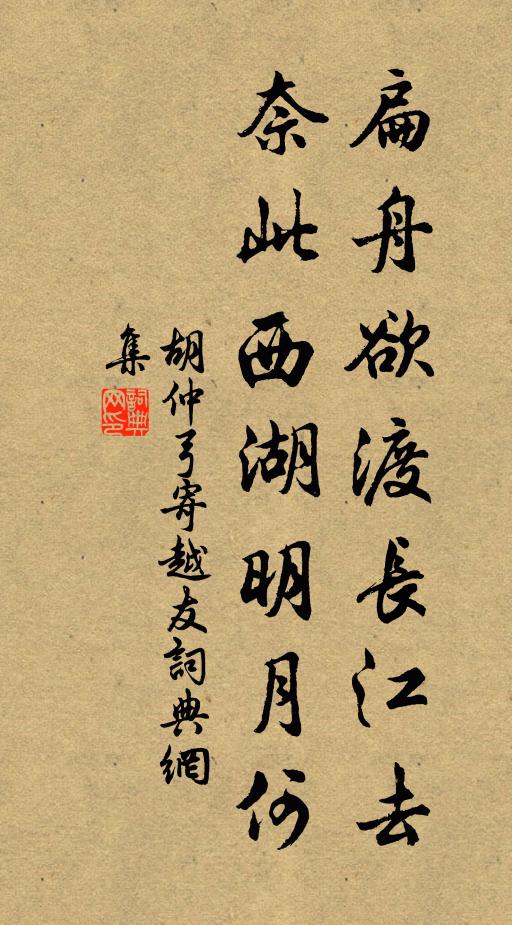 扁舟欲渡長江去
奈此西湖明月何
胡仲弓寄越友詞典網
集
詞典网印